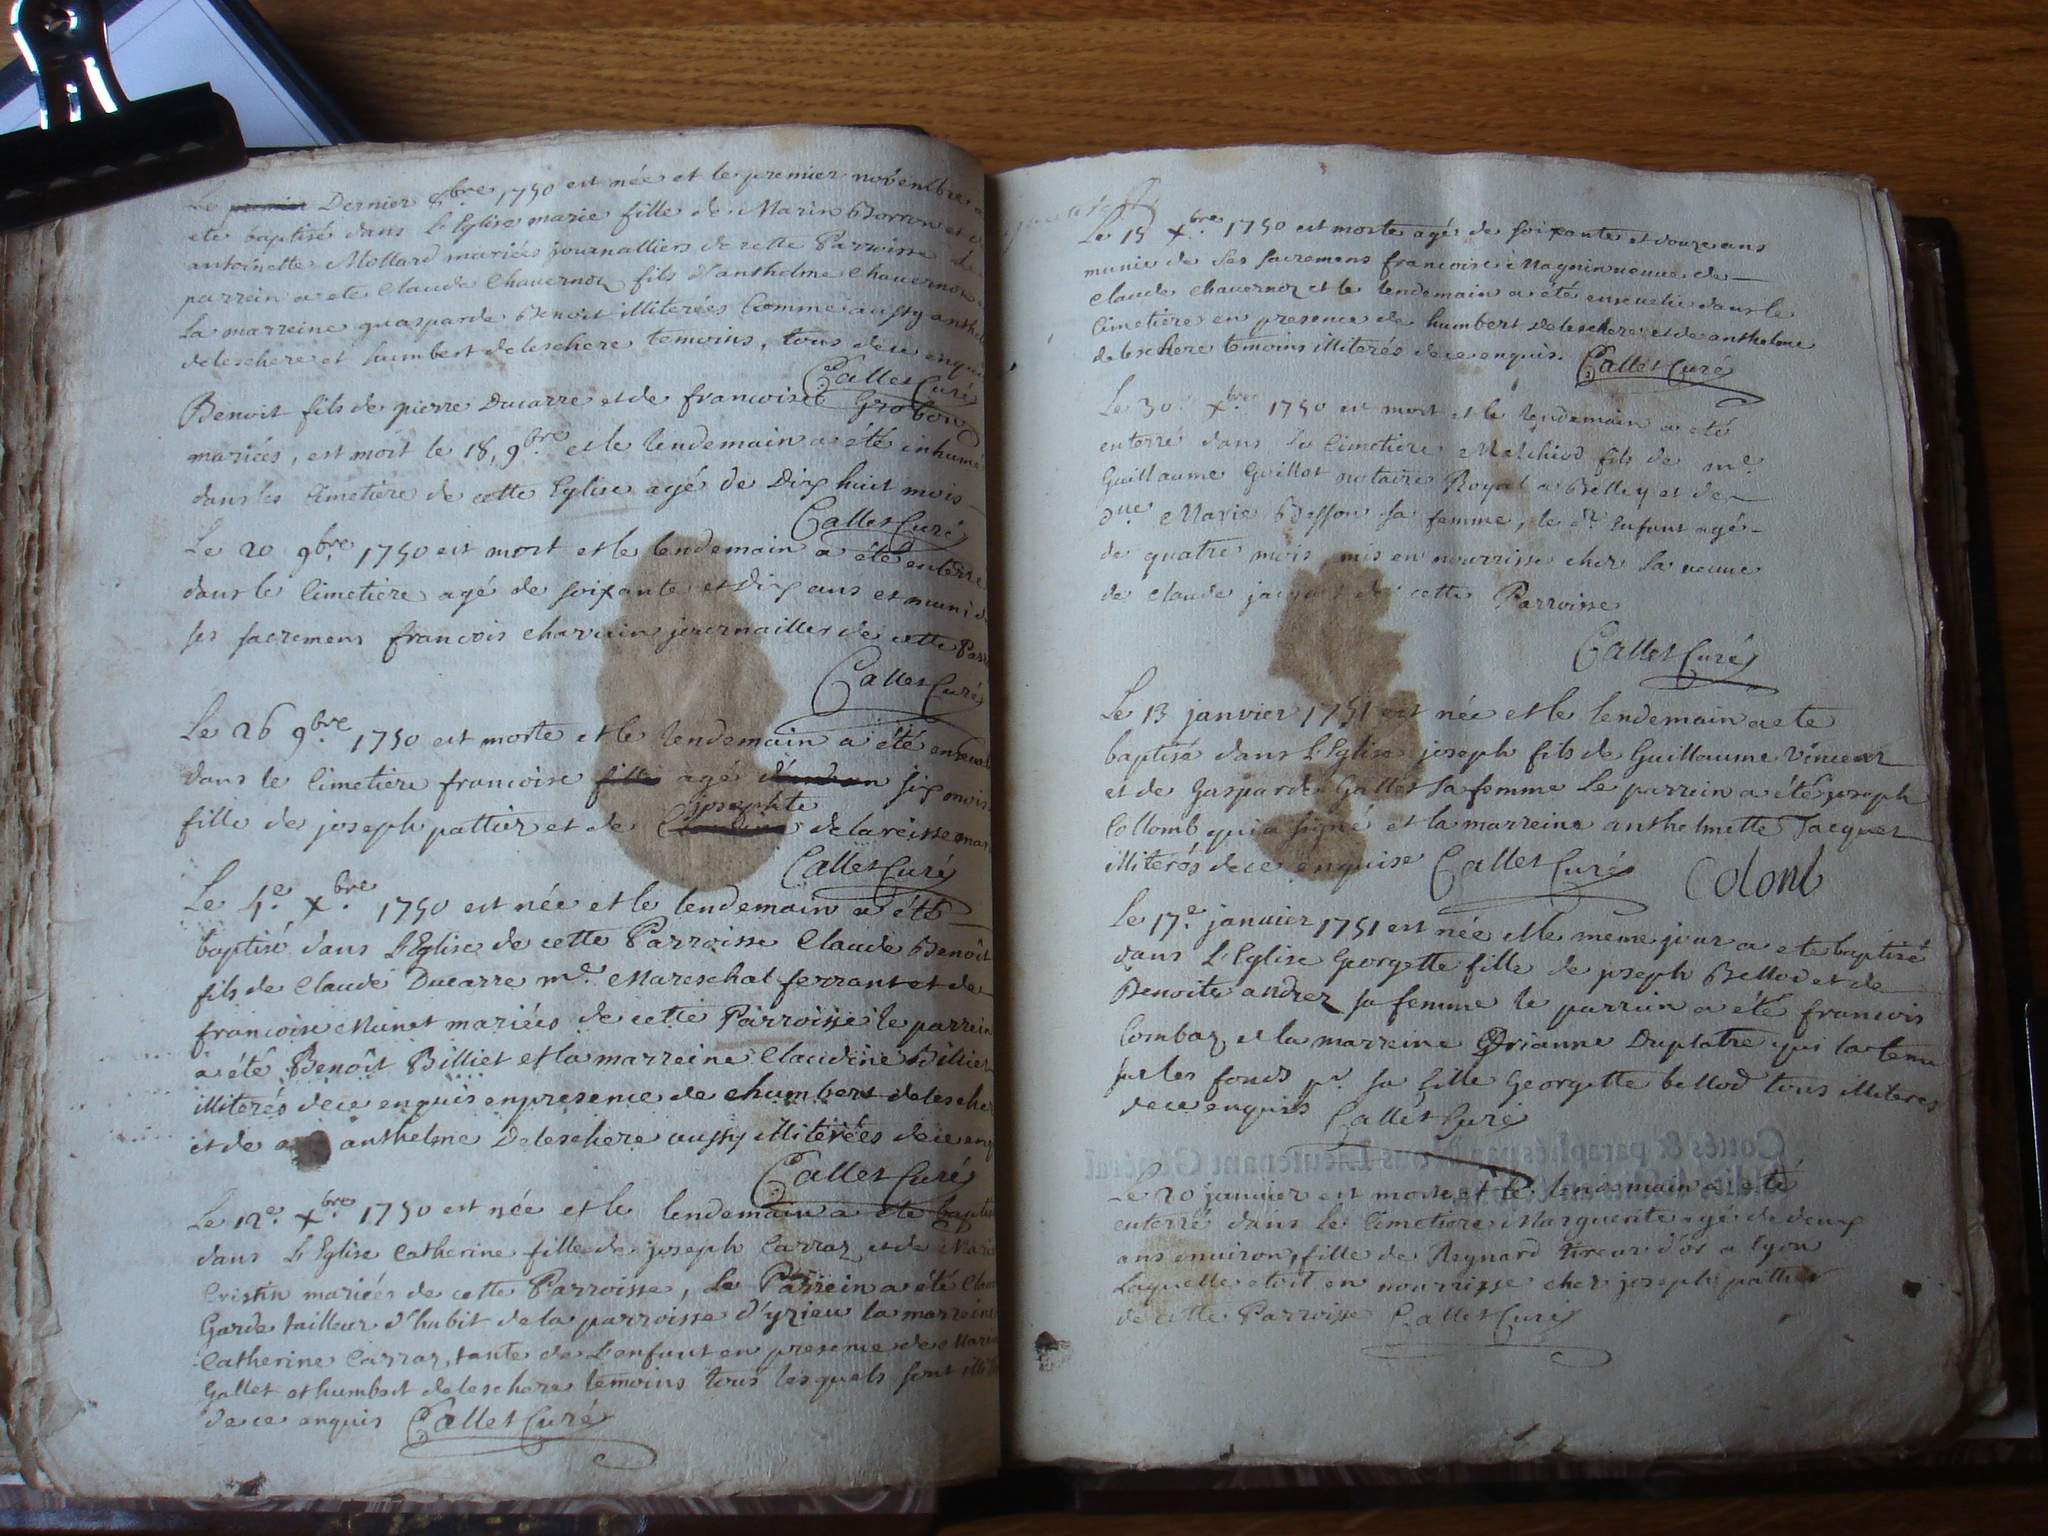 Le premier Dernier 8bre 1750 est née et le premier novembre a
ete baptisé dans L'Eglise marie fille de Marin Borron et d
antoinette Mollard mariées journalliers de cette Parroisse
parrein a ete Claude Chavernoz fils d'anthelme Chavernoz
La marreine guasparde Benoit illiterées Comme aussy anthel
deleschere et humbert deleschere temoins, tous dece enquis
Callet Curé
Benoit fils de pierre Ducarre et de francoise Grobon
mariées, est mort le 18, 9bre et le lendemain a été inhumé
dans les Cimetiere de cette Eglise agé de Dix huit mois
Callet Curé
Le 20 9bre 1750 est mort et le lendemain a été enterré
dans le Cimetiere agé de soixante et dix ans et muni d
ses sacremens francois charvin journailler de cette Parr
Callet Curé
Le 26 9bre 1750 est morte et le lendemain a été enseveli
dans le Cimetiere francoise fille agé d'und'un six mois
josephte
fille de joseph pattier et de Claudine delareisse mar
Callet Curé
Le 4e. Xbre 1750 est née et le lendemain a été
baptisé dans L'Eglise de cette Parroisse Claude Benoît
fils de Claude Ducarre me. Mareschal ferrant et de
francoise Munet mariées de cette Parroisse le parrein
a été Benoît Billiet et la marreine Claudine Billiet
illiterés dece enquis enpresence de chumbert delescher
et de anthelme Deleschere aussy illiterées dece enq
Callet Curé
Le 12e. Xbre 1750 est née et le lendemain a ete baptis
dans L'Eglise Catherine fille de joseph Carraz et de Mari
Cristin mariées de cette Parroisse, Le Parrein a été Clau
Garde tailleur d'habit de la parroisse d'yzieu la marreine
Catherine Carraz, tante de L'enfant en presence de Mari
Gallet et humbert deleschere temoins tous lesquels sont illi
de ce enquis Callet Curé
Le 15 Xbre. 1750 est morte agé de soixante et douze ans
munie de ses sacremens francoise Magnin veuve de
Claude Chavernoz et le lendemain a été ensevelie dans le
Cimetiere en presence de humbert deleschere et de anthelme
deleschere temoins illiterés dece enquis. Callet Curé
Le 30. Xbre 1750 est mort et le lendemain a eté
enterré dans le Cimetiere Melchiod fils de me.
Guillaume Guillot notaire Royal a Belley et de
due Marie Besson sa femme, le dt. Enfant agé
de quatre mois, mis en nourrisse chez La veuve
de Claude de cette Parroisse
Callet Curé
Le 13 janvier 1751 est née et le lendemain a ete
baptisé dans L'Eglise joseph fils de Guillaume Vincent
et de Gasparde Gallet sa femme Le parrein a été joseph
Collomb qui a signé et la marreine anthelmette Jacquet
illiterés dece enquise Callet Curé Colomb
Le 17e. janvier 1751 est née et le meme jour a ete baptisé
dans L'Eglise Georgette fille de joseph Bellod et de
Benoite andrez sa femme le parrein a été francois
Combaz et la marreine Orianne Duplatre qui la tenu
sur les fonds pr. sa fille Georgette bellod tous illiteres
dece enquis Callet Curé
Cottés & paraphés par Nous Lieutenant Général
Le 20 janvier est morte et le lendemain a eté
enterré dans le Cimetiere Marguerite agé de deux
ans environ, fille de Reynard tireur d'or a Lyon
Laquelle etoit en nourrisse chez joseph pattier
de cette Parroisse Callet Curé